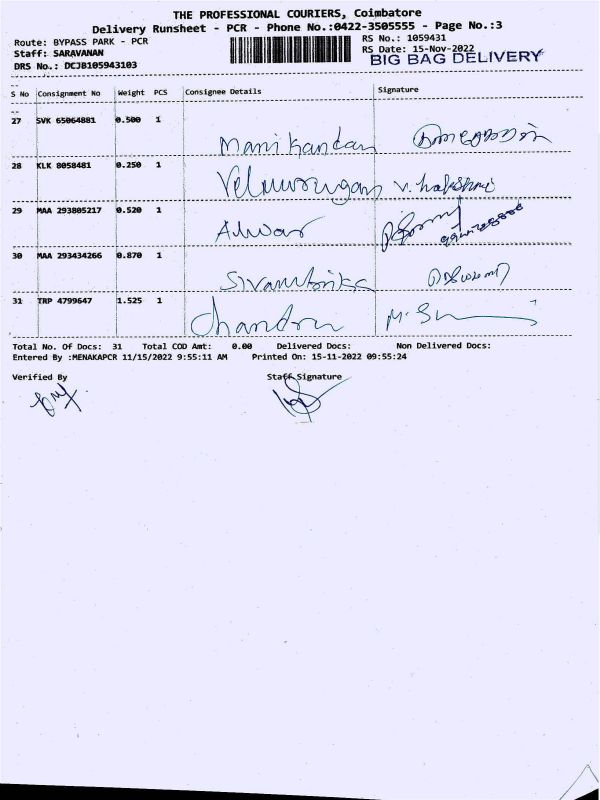 THE PROFESSIONAL COURIERS, Coimbatore
Delivery Runsheet - PCR - Phone No.:0422-3505555 - Page No.:3
Route: BYPASS PARK - PCR
RS No.: 1059431
Staff: SARAVANAN
RS Date: 15-Nov-2022
BIG BAG DELIVERY
DRS No.: DCJB105943103
S No Consignment No Weight PCS Consignee Details Signature
27 SVK 65064881 0.500 1
Manikandan
28 KLK 8058481 0.250 1
Velmurugan
29 MAA 293805217 0.520 1
Alwar
30 MAA 293434266 0.870 1
31 TRP 4799647 1.525 1
Chandru
Total No. Of Docs: 31 Total COD Amt: 0.00 Delivered Docs: Non Delivered Docs:
Entered By :MENAKAPCR 11/15/2022 9:55:11 AM Printed On: 15-11-2022 09:55:24
Verified By Staff Signature